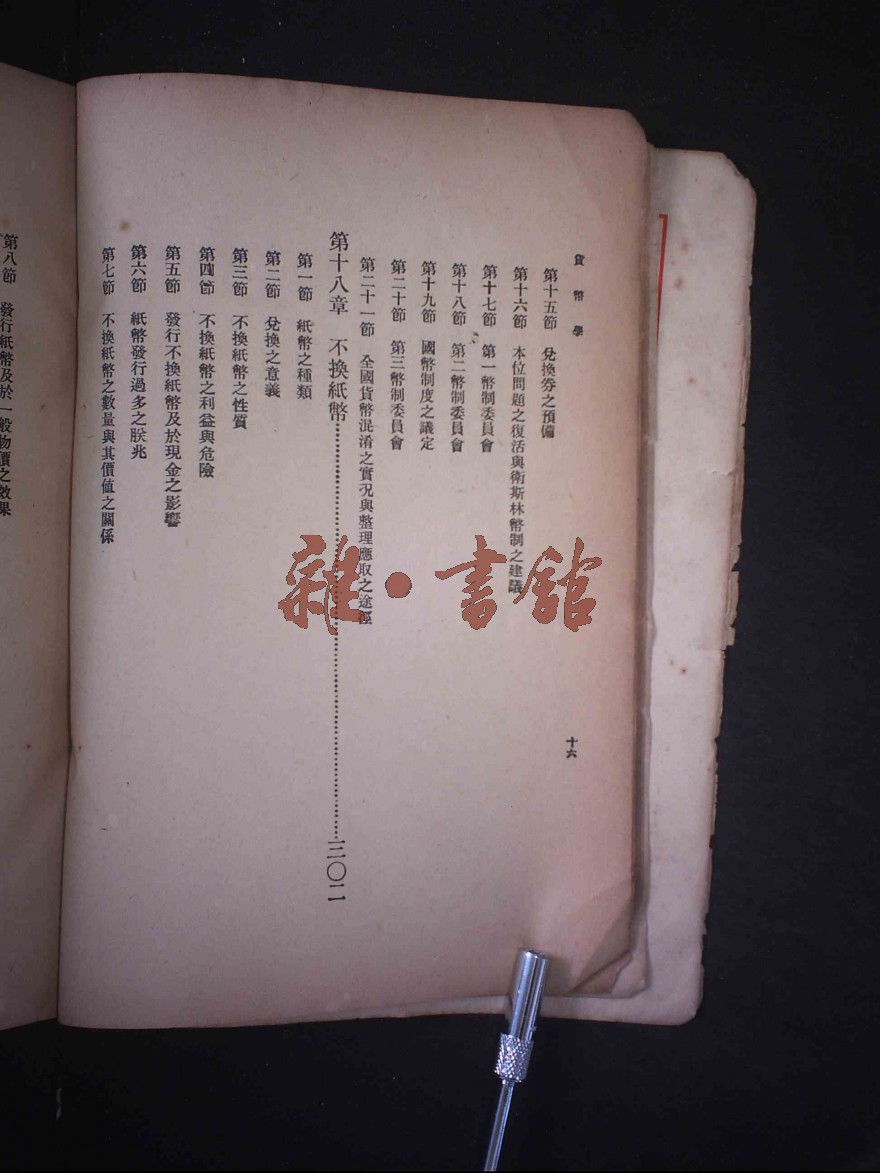 貨幣學
十六
第十五節 兌換券之預備
第十六節 本位問題之復活與衛斯林幣制之建議
第十七節 第一幣制委員會
第十八節 第二幣制委員會
第十九節 國幣制度之議定
第二十節 第三幣制委員會
第二十一節 全國貨幣混淆之實況與整理應取之途徑
第十八章 不換紙幣……三〇二
第一節 紙幣之種類
第二節 兌換之意義
第三節 不換紙幣之性質
第四節 不換紙幣之利益與危險
第五節 發行不換紙幣及於現金之影響
第六節 紙幣發行過多之朕兆
第七節 不換紙幣之數量與其價值之關係
第八節 發行紙幣及於一般物價之效果
雜·書館